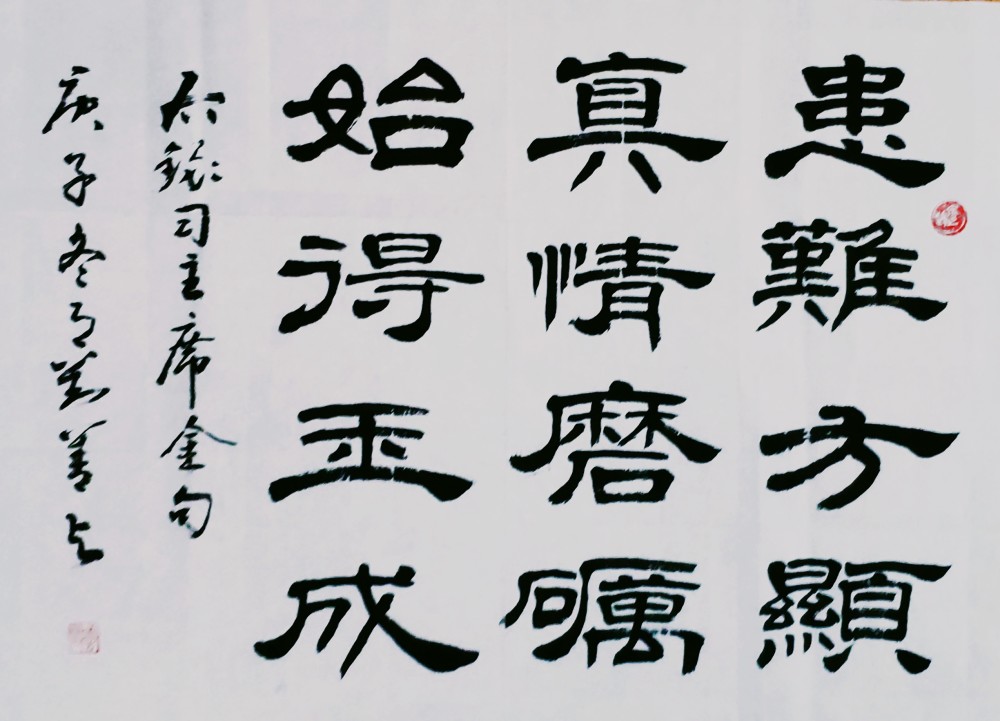 患難方顯
真情磨礪
始得玉成
右錄司主席金句
庚子冬月 善